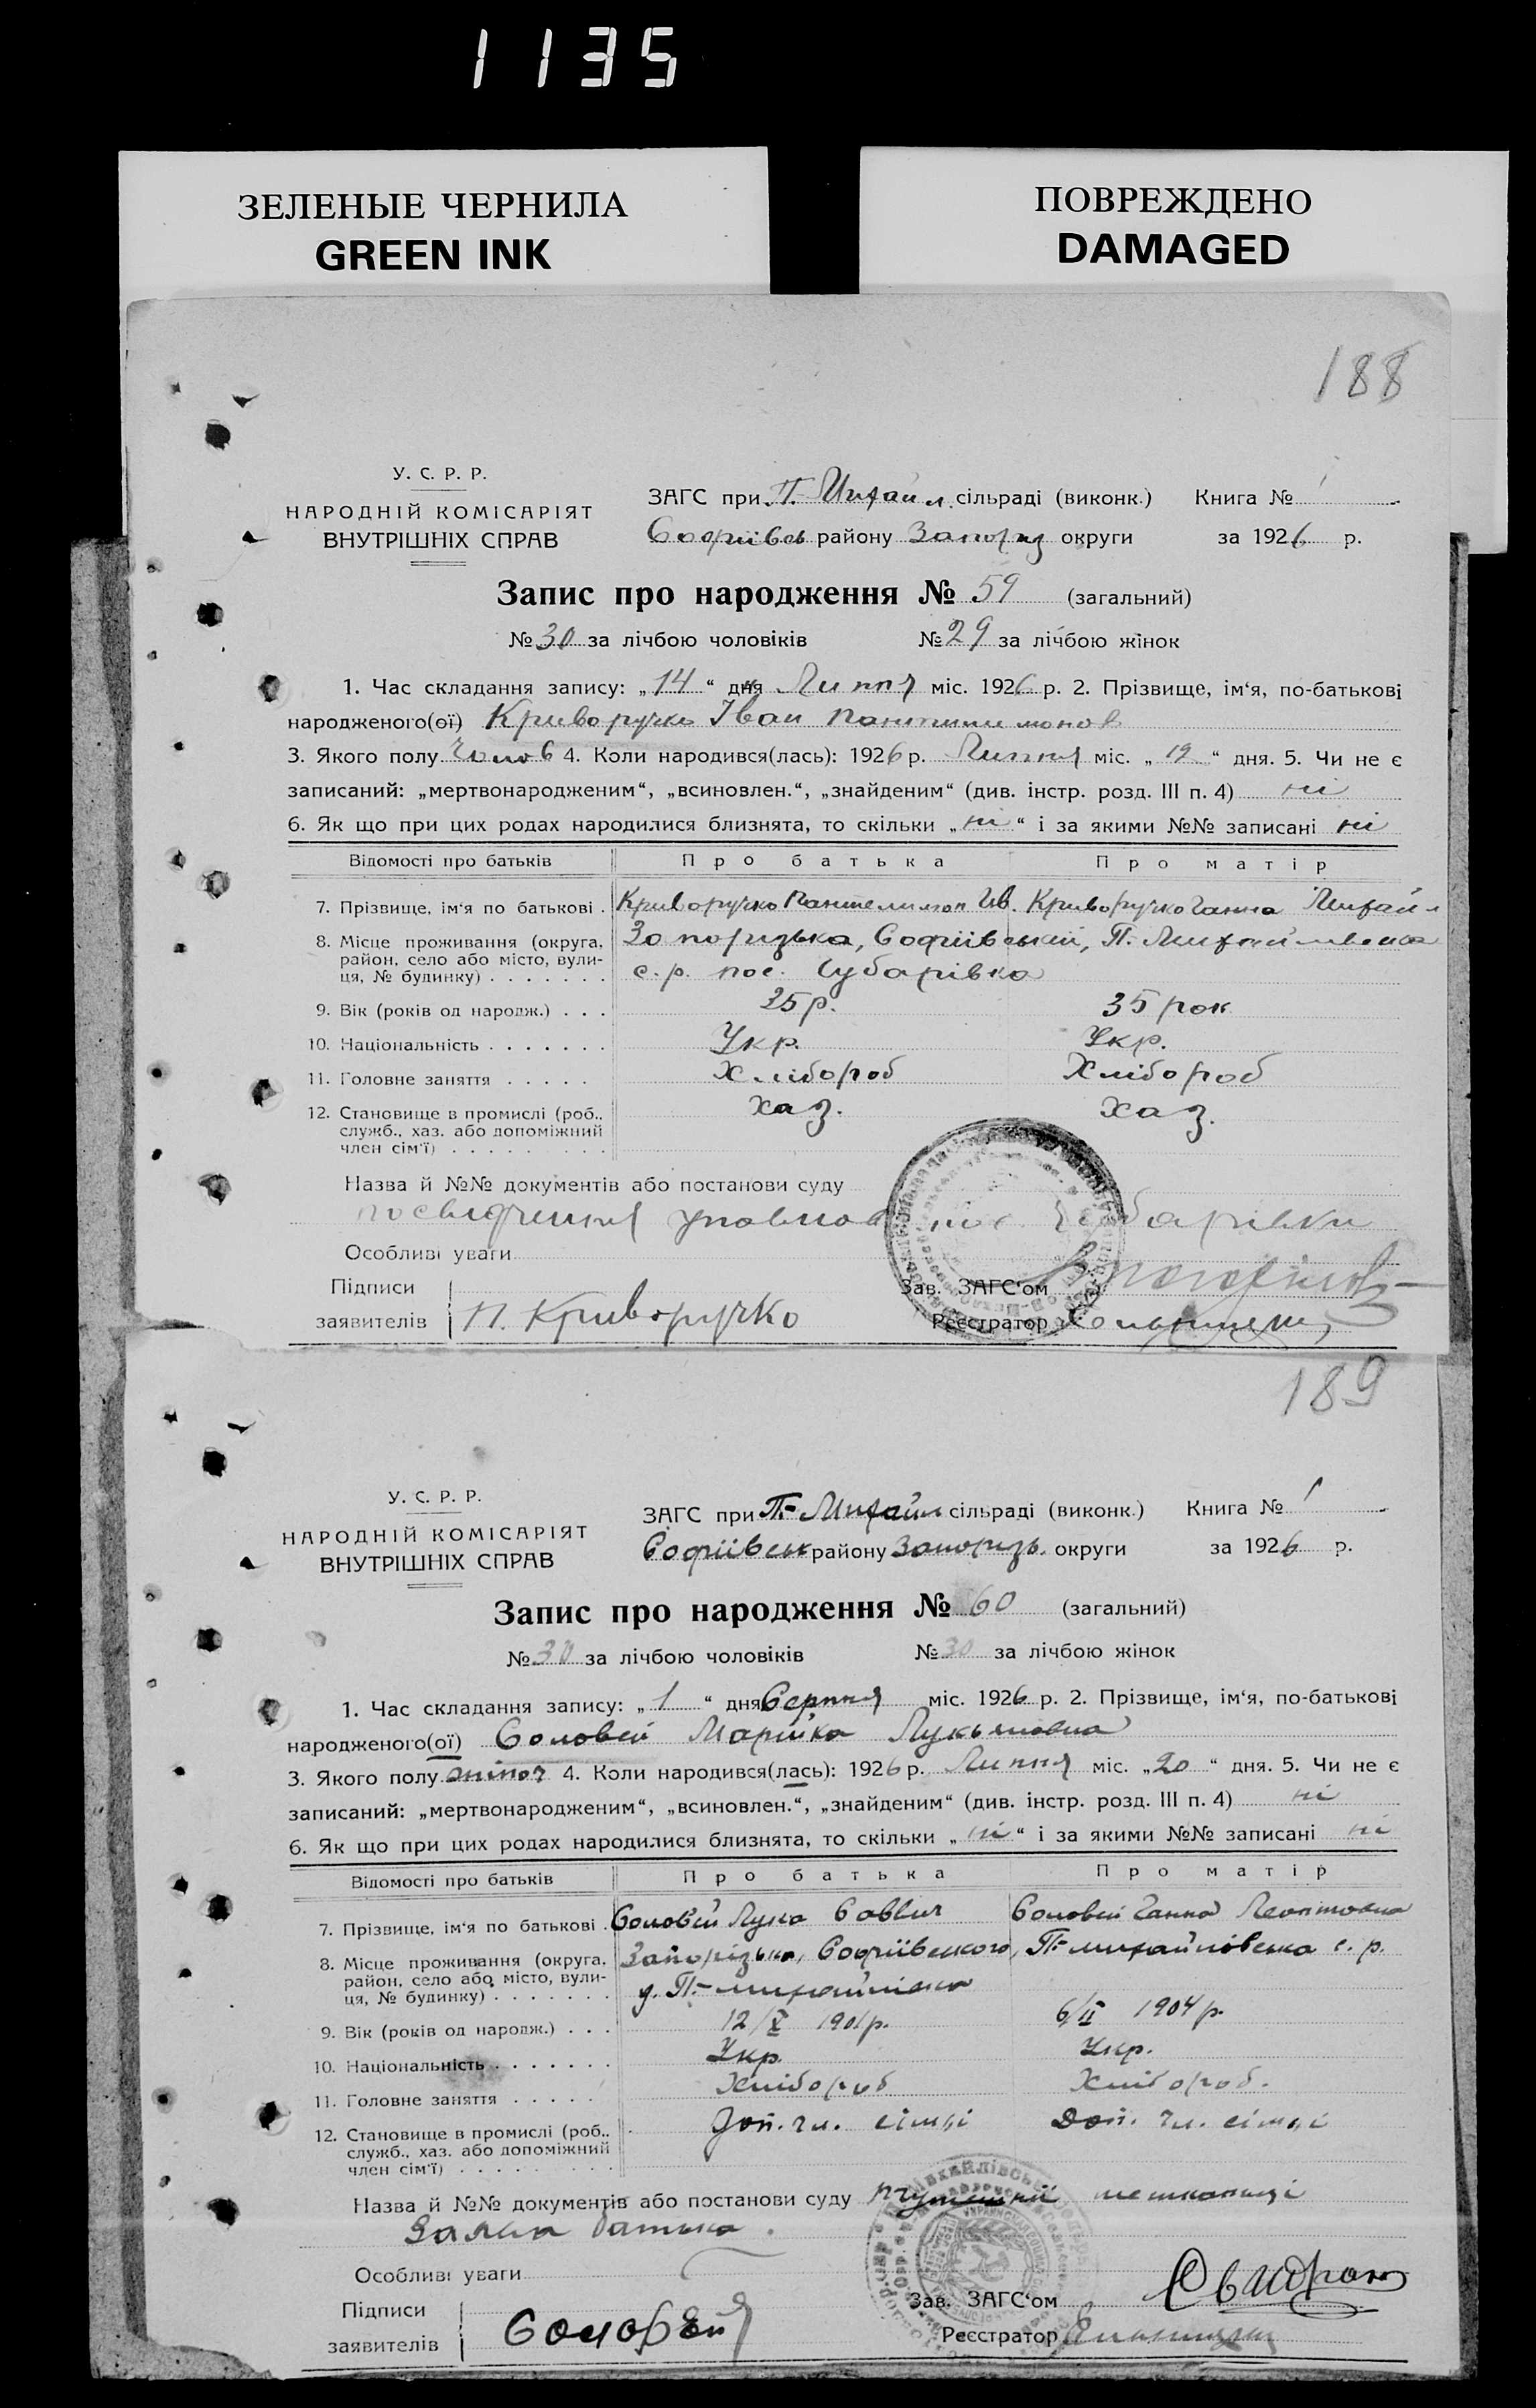 1135
ЗЕЛЕНЫЕ ЧЕРНИЛА
GREEN INK
ПОВРЕЖДЕНО
DAMAGED
188
У. С. Р. Р.
НАРОДНІЙ КОМІСАРІЯТ
ВНУТРІШНІХ СПРАВ
ЗАГС при П.-Михайл. сільраді (виконк.) Книга № 1
Софіївсь району Запоріз округи за 1926 р.
Запис про народження № 59 (загальний)
№ 30 за лічбою чоловіків № 29 за лічбою жінок
1. Час складання запису: „14“ дня Липня міс. 1926 р. 2. Прізвище, ім‘я, по-батькові
народженого(ої) Криворучко Іван
3. Якого полу Чолов 4. Коли народився(лась): 1926 р. Липня міс. „12“ дня. 5. Чи не є
записаний: „мертвонародженим“, „всиновлен.“, „знайденим“ (див. інстр. розд. III п. 4) ні
6. Як що при цих родах народилися близнята, то скільки „ні“ і за якими №№ записані ні
Відомості про батьків Про батька Про матір
7. Прізвище, ім‘я по батькові . Криворучко Пантелимон Ів. Криворучко Ганна Михайл
8. Місце проживання (округа, Запорізька, Софіївський, П. Михайлівська
район, село або місто, вули- с.р. пос. Чубарівка
ця, № будинку) . . . . . . .
9. Вік (років од народж.) . . . 35 р. 35 рок
10. Національність . . . . . . . Укр. Укр.
11. Головне заняття . . . . . Хлібороб Хлібороб
12. Становище в промислі (роб., хаз. хаз.
служб., хаз. або допоміжний
член сім‘ї) . . . . . . . . .
Назва й №№ документів або постанови суду
посвідчення уповнов пос. Чубарівки
Особливі уваги
Підписи Зав. ЗАГС‘ом
заявителів П. Криворучко Реєстратор
189
У. С. Р. Р.
НАРОДНІЙ КОМІСАРІЯТ
ВНУТРІШНІХ СПРАВ
ЗАГС при П.-Михайл сільраді (виконк.) Книга № 1
Софіївськ району Запорізь. округи за 1926 р.
Запис про народження № 60 (загальний)
№ 30 за лічбою чоловіків № 30 за лічбою жінок
1. Час складання запису: „1“ дня Серпня міс. 1926 р. 2. Прізвище, ім‘я, по-батькові
народженого(ої) Соловей Марійка Лукьяновна
3. Якого полу жіноч 4. Коли народився(лась): 1926 р. Липня міс. „20“ дня. 5. Чи не є
записаний: „мертвонародженим“, „всиновлен.“, „знайденим“ (див. інстр. розд. III п. 4) ні
6. Як що при цих родах народилися близнята, то скільки „ні“ і за якими №№ записані ні
Відомості про батьків Про батька Про матір
7. Прізвище, ім‘я по батькові . Соловей Лука Саввич Соловей Ганна Леонтовна
8. Місце проживання (округа, Запорізька, Софіївського, П.-Михайлівська с. р.
район, село або місто, вули- П.-Михайлівка
ця, № будинку) . . . . . . .
9. Вік (років од народж.) . . . 12/X 1901 р. 6/II 1904 р.
10. Національність . . . . . . . Укр. Укр.
11. Головне заняття . . . . . Хлібороб Хлібороб.
12. Становище в промислі (роб., Доп. чл. сімьї Доп. чл. сімьї
служб., хаз. або допоміжний
член сім‘ї) . . . . . . . . .
Назва й №№ документів або постанови суду тутешній мешканці
Заява батька.
Особливі уваги
Підписи Зав. ЗАГС‘ом
заявителів Соловей Реєстратор